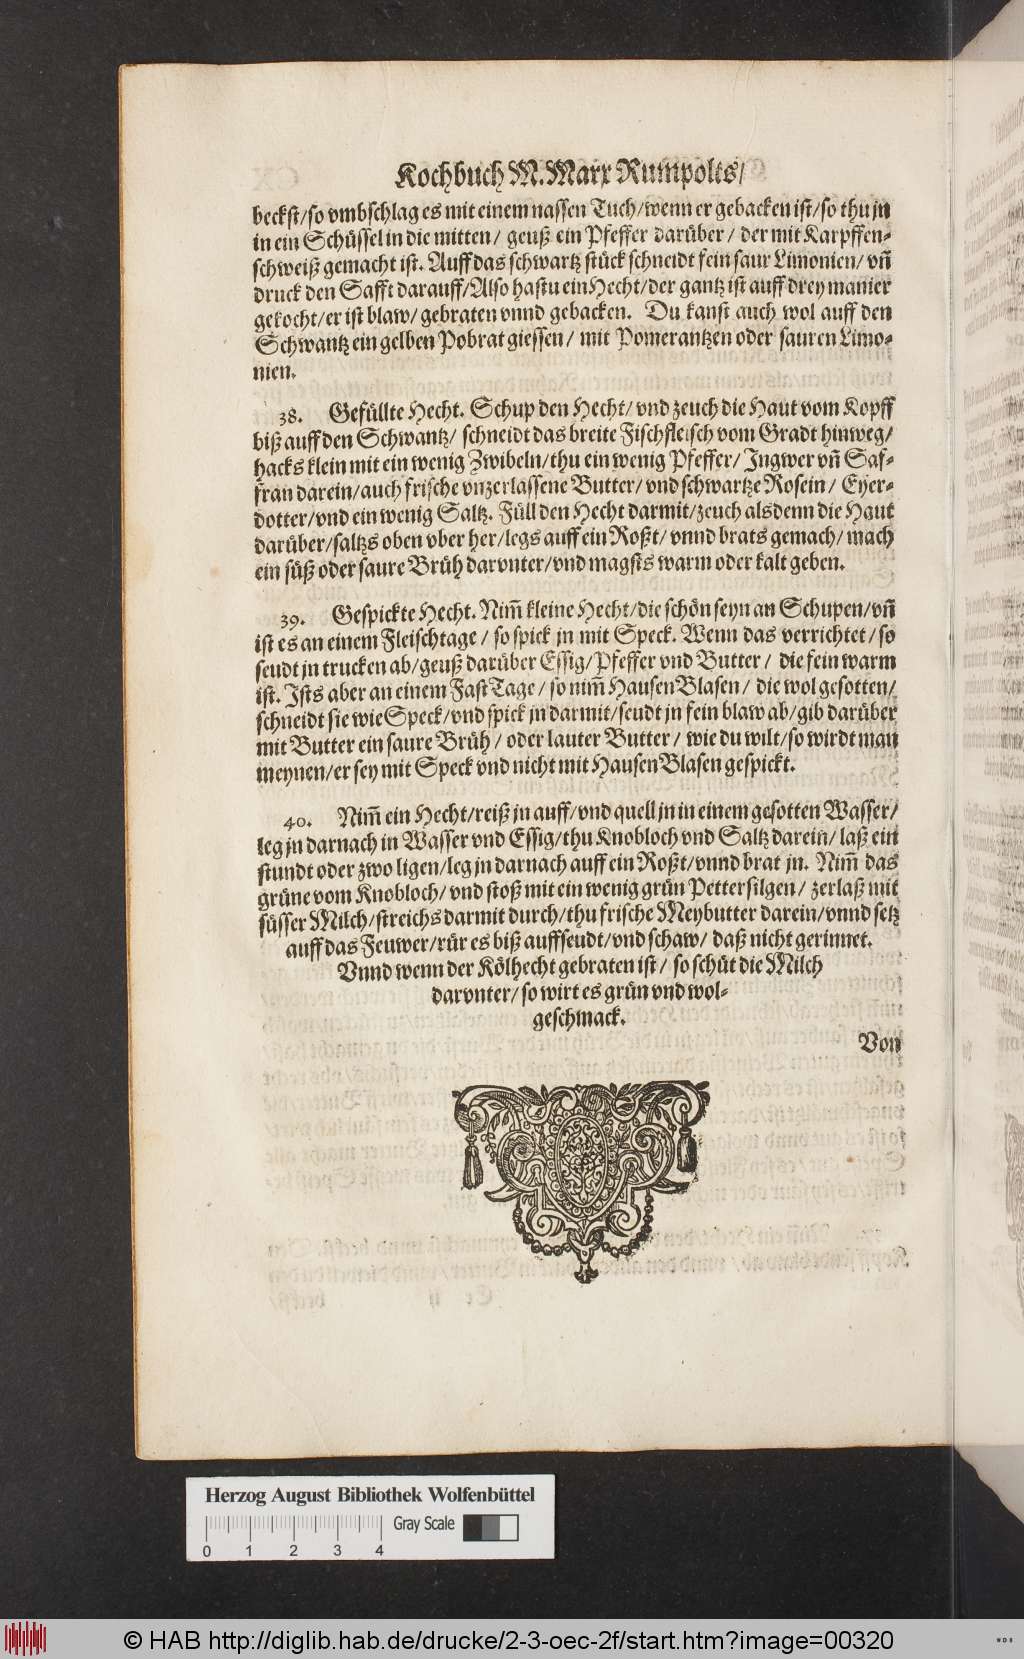 Kochbuch M. Marx Rumpolts/
beckst/so vmbschlag es mit einem nassen Tuch/wenn er gebacken ist/so thu jn
in ein Schüssel in die mitten/ geuß ein Pfeffer darüber/ der mit Karpffen-
schweiß gemacht ist. Auff das schwartz stück schneidt fein saur Limonien/ vn̄
druck den Safft darauff/Also hastu ein Hecht/der gantz ist auff drey manier
gekocht/er ist blaw/ gebraten vnnd gebacken. Du kanst auch wol auff den
Schwantz ein gelben Pobrat giessen/ mit Pomerantzen oder sauren Limo-
nien.
38. Gefüllte Hecht. Schup den Hecht/ vnd zeuch die Haut vom Kopff
biß auff den Schwantz/ schneidt das breite Fischfleisch vom Gradt hinweg/
hacks klein mit ein wenig Zwibeln/thu ein wenig Pfeffer/ Ingwer vn̄ Saf-
fran darein/auch frische vnzerlassene Butter/ vnd schwartze Rosein/ Eyer-
dotter/vnd ein wenig Saltz. Füll den Hecht darmit/zeuch alsdenn die Haut
darüber/saltzs oben vber her/legs auff ein Roßt/ vnnd brats gemach/ mach
ein süß oder saure Brüh darvnter/vnd magsts warm oder kalt geben.
39. Gespickte Hecht. Nim̄ kleine Hecht/die schön seyn an Schupen/vn̄
ist es an einem Fleischtage/ so spick jn mit Speck. Wenn das verrichtet/so
seudt jn trucken ab/geuß darüber Essig/Pfeffer vnd Butter/ die fein warm
ist. Ists aber an einem FastTage/ so nim̄ HausenBlasen/ die wol gesotten/
schneidt sie wie Speck/vnd spick jn darmit/seudt jn fein blaw ab/gib darüber
mit Butter ein saure Brüh/ oder lauter Butter/ wie du wilt/so wirdt man
meynen/er sey mit Speck vnd nicht mit HausenBlasen gespickt.
40. Nim̄ ein Hecht/reiß jn auff/vnd quell jn in einem gesotten Wasser/
leg jn darnach in Wasser vnd Essig/thu Knobloch vnd Saltz darein/ laß ein
stundt oder zwo ligen/leg jn darnach auff ein Roßt/vnnd brat jn. Nim̄ das
grüne vom Knobloch/ vnd stoß mit ein wenig grün Pettersilgen/ zerlaß mit
süsser Milch/streichs darmit durch/thu frische Meybutter darein/vnnd setz
auff das Feuwer/rür es biß auffseudt/vnd schaw/ daß nicht gerinnet.
Vnnd wenn der Kölhecht gebraten ist/ so schüt die Milch
darvnter/so wirt es grün vnd wol-
geschmack.
Von
Herzog August Bibliothek Wolfenbüttel
Gray Scale
0 1 2 3 4
© HAB http://diglib.hab.de/drucke/2-3-oec-2f/start.htm?image=00320